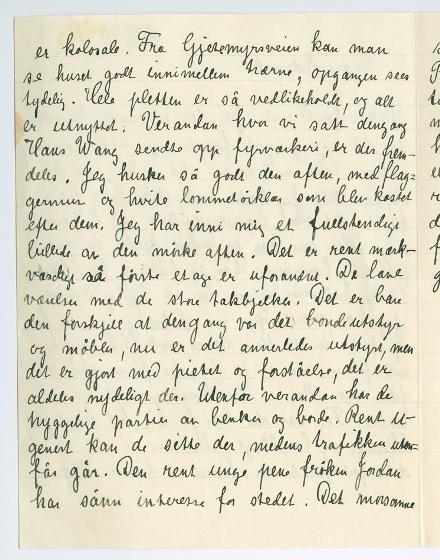 er kolosale. Fra Gjetemyrsveien kan man
se huset godt innimellem trærne, opgangen sees
tydelig. Hele pletten er så vedlikeholdt, og alt
er utnyttet. Verandan hvor vi satt dengang
Hans Wang sendte opp fyrverkeri, er der frem-
deles. Jeg husker så godt den aften, med flag-
germus og hvite lommetörklær som blev kastet
efter dem. Jeg har inni mig et fullstendige
billede av den mörke aften. Det er rent merk-
værdigt så förste etage er uforandret. De lave
værelser med de store takbjelker. Det er bare
den forskjell at dengang var det bondeutstyr
og möbler, nu er det annerledes utstyrt, men
det er gjort med pietet og forståelse, det er
aldeles nydeligt der. Utenfor verandan har de
hyggelige partier av benker og borde. Rent u-
genert kan de sitte der, medens trafikken uten-
får går. Den rent unge pene fröken Jordan
har sånn interesse for stedet. Det morsomme